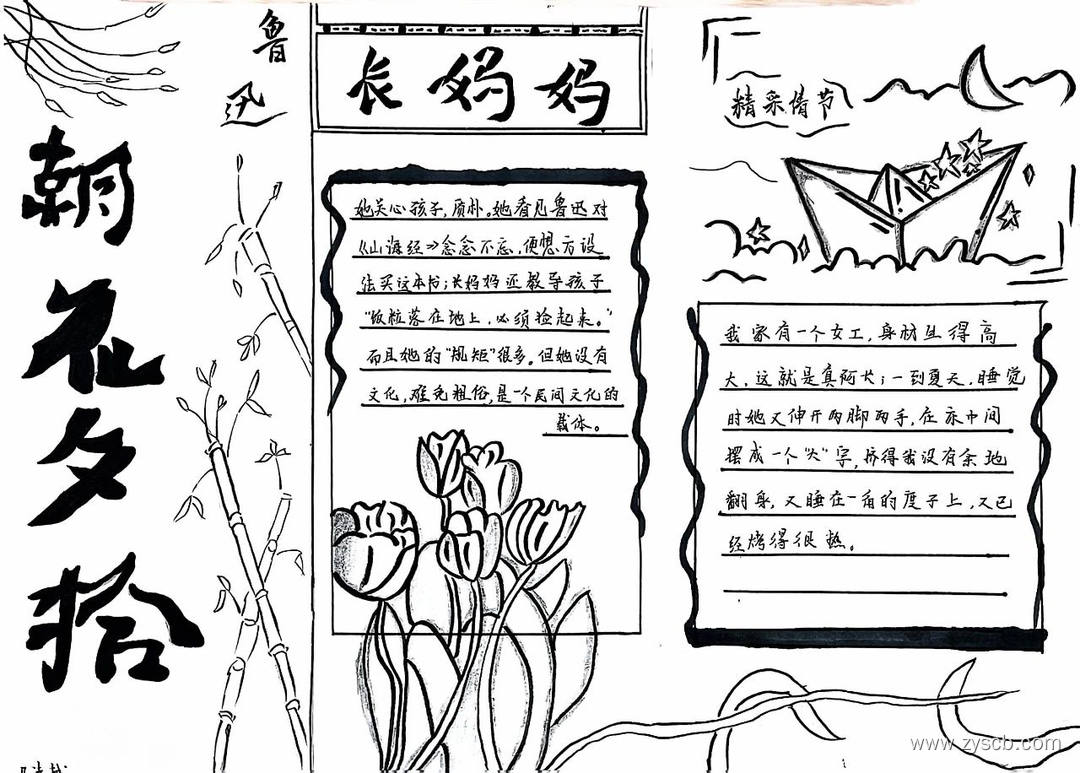 朝花夕拾
鲁迅
长妈妈
她关心孩子，质朴。她看见鲁迅对
《山海经》念念不忘，便想方设
法买这本书；长妈妈还教导孩子
“饭粒落在地上，必须捡起来。”
而且她的“规矩”很多。但她没有
文化，难免粗俗，是一个民间文化的
载体。
精采情节
我家有一个女工，身材生得高
大，这就是真阿长；一到夏天，睡觉
时她又伸开两脚两手，在床中间
摆成一个“大”字，挤得我没有余地
翻身，又睡在一角的席子上，又已
经烤得很热。
www.zyscb.com